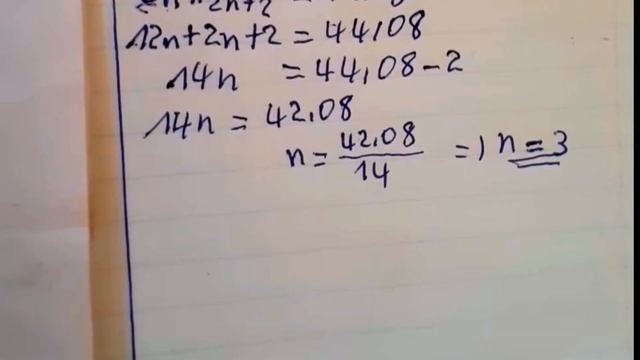 2n+2
12n+2n+2 = 44,08
14n = 44,08-2
14n = 42,08
n = 42,08/14 =) n = 3